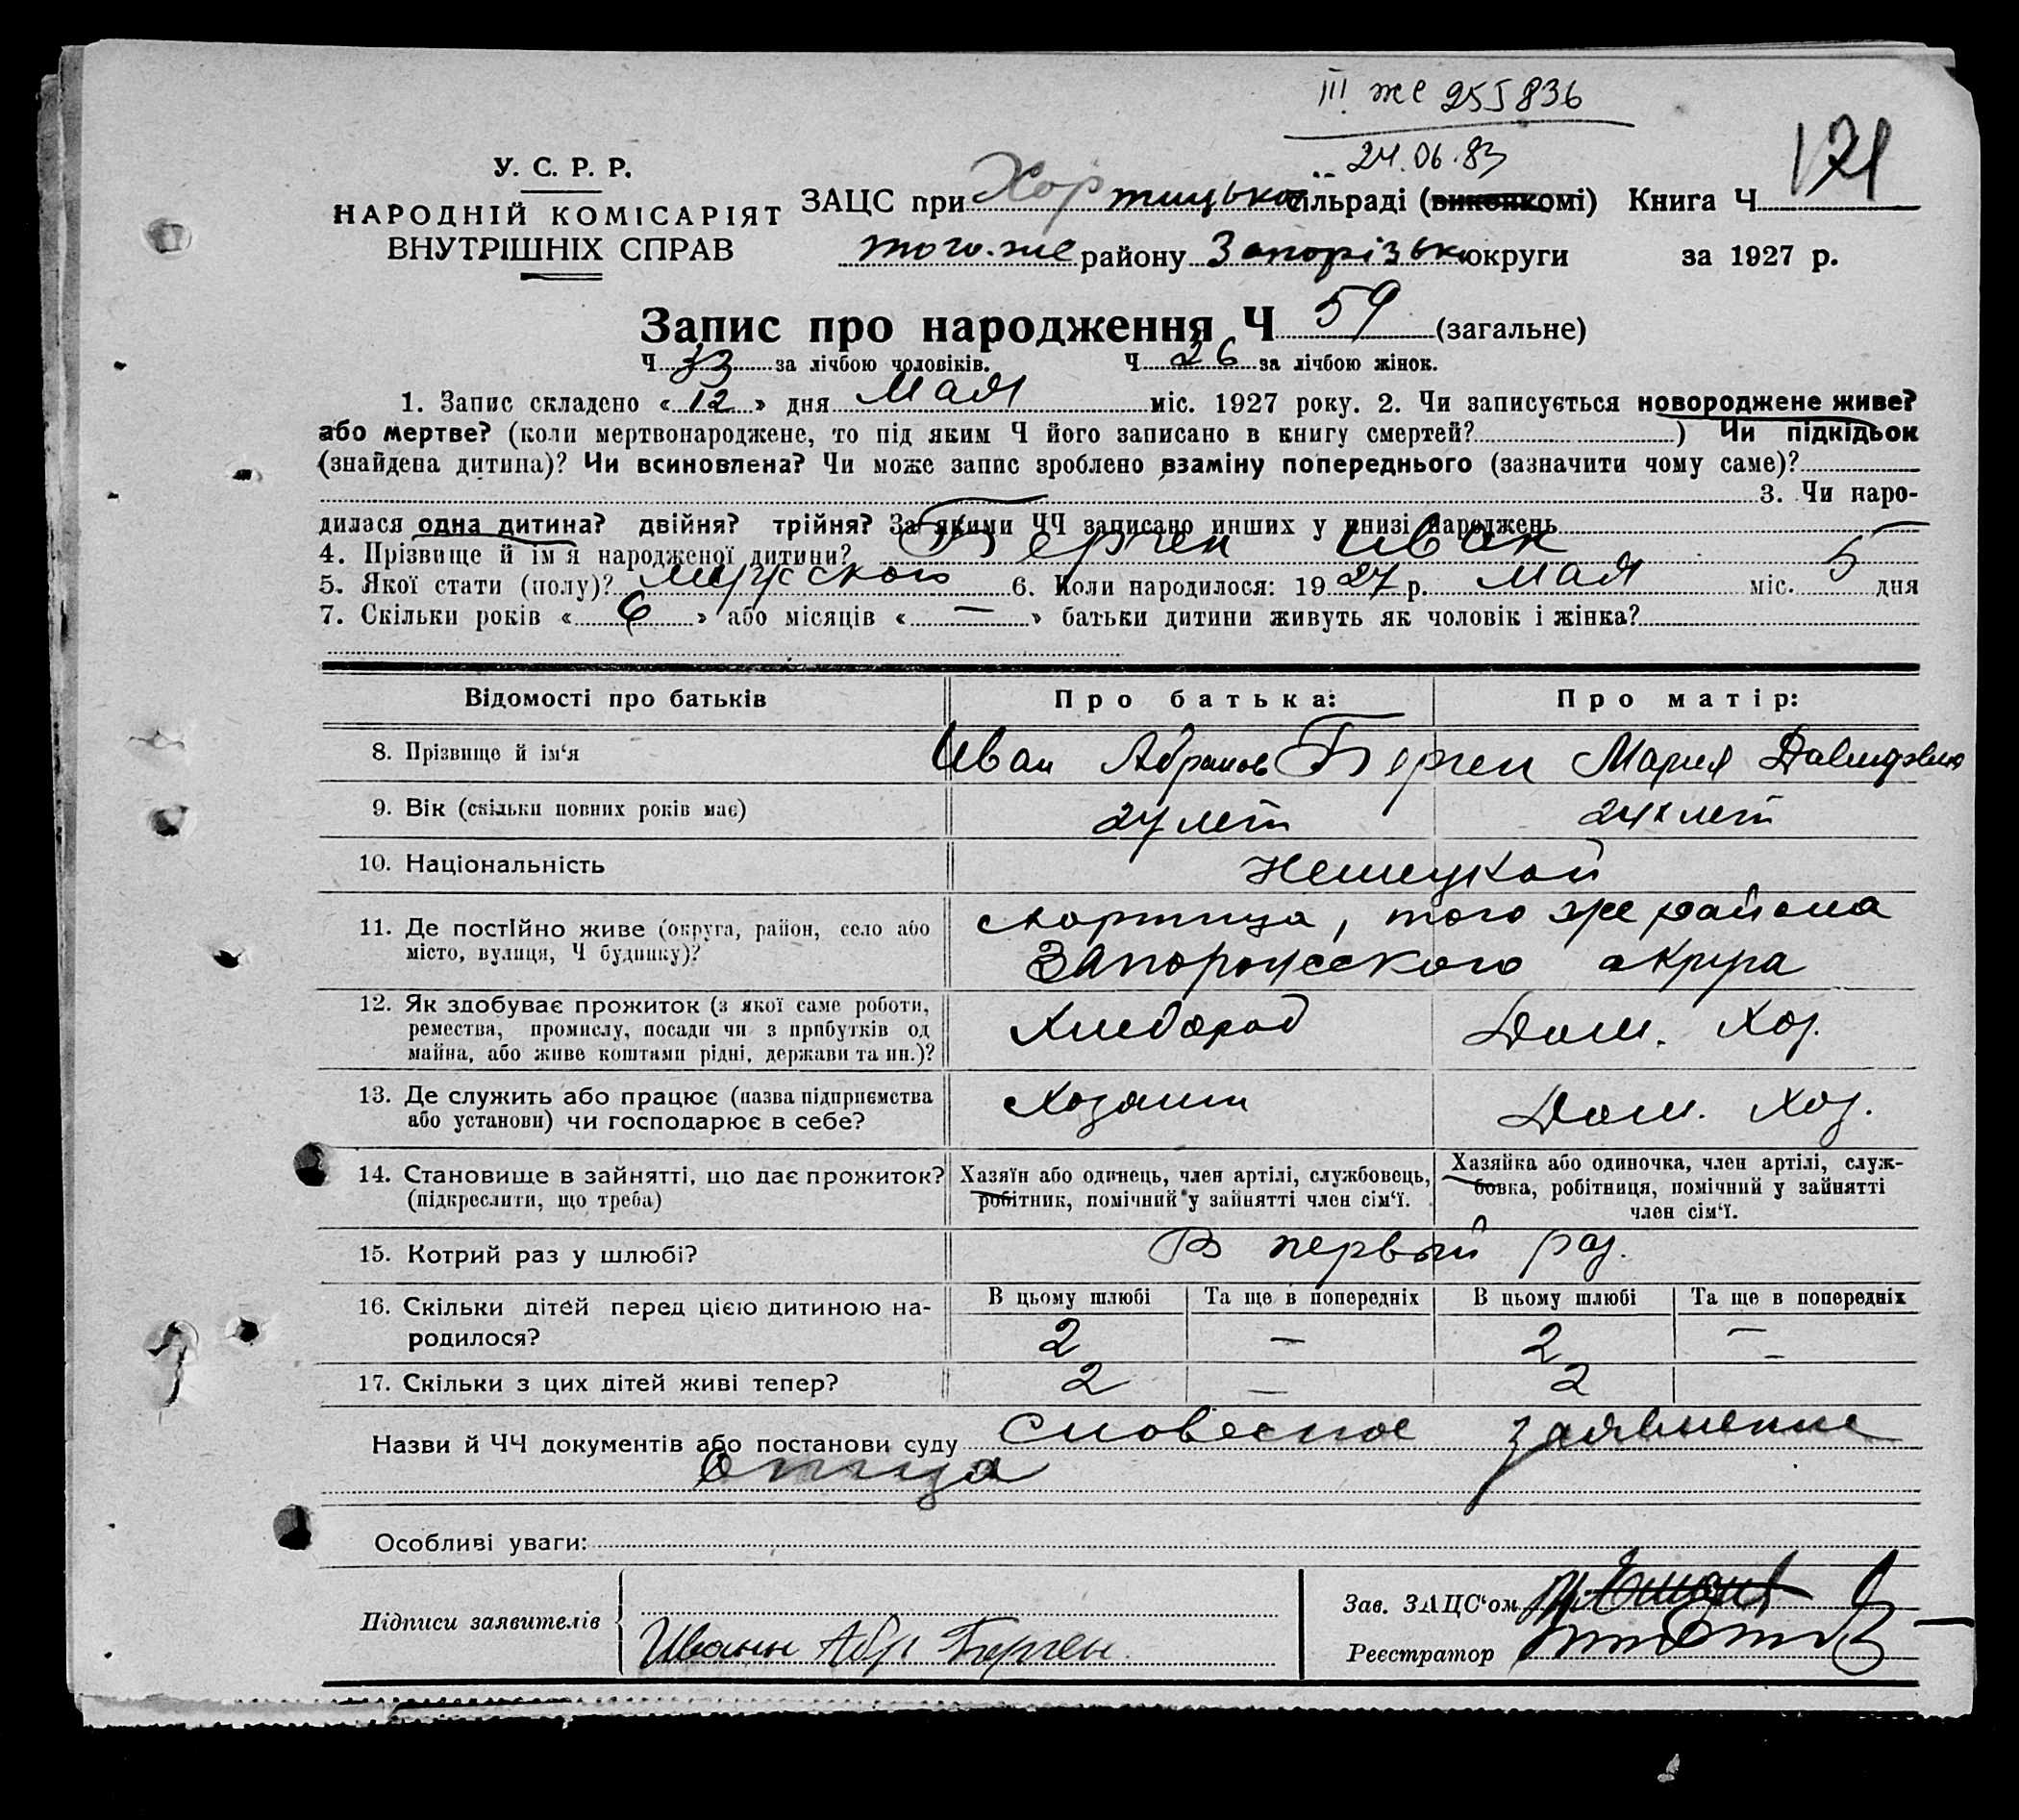 III ЖС 255836
24.06.83
У. С. Р. Р.
НАРОДНІЙ КОМІСАРІЯТ
ВНУТРІШНІХ СПРАВ
ЗАЦС при Хортицькой сільраді (виконкомі) Книга Ч 171
того-же району Запорізьк округи за 1927 р.
Запис про народження Ч 59 (загальне)
Ч 33 за лічбою чоловіків. Ч 26 за лічбою жінок.
1. Запис складено « 12 » дня Мая міс. 1927 року. 2. Чи записується новороджене живе?
або мертве? (коли мертвонароджене, то під яким Ч його записано в книгу смертей? ) Чи підкідьок
(знайдена дитина)? Чи всиновлена? Чи може запис зроблено взаміну попереднього (зазначити чому саме)?
3. Чи наро-
дилася одна дитина? двійня? трійня? За якими ЧЧ записано инших у книзі народжень
4. Прізвище й ім'я народженої дитини? Берген Иван
5. Якої стати (полу)? мужского 6. Коли народилося: 1927 р. Мая міс. 5 дня
7. Скільки років « 6 » або місяців « — » батьки дитини живуть як чоловік і жінка?
Відомості про батьків Про батька: Про матір:
8. Прізвище й ім'я Иван Абрамов Берген Мария Давидовна
9. Вік (скільки повних років має) 27 лет 24х лет
10. Національність Немецкой
11. Де постійно живе (округа, район, село або
місто, вулиця, Ч будинку)?
Хортица, того же района
Запорожского округа
12. Як здобуває прожиток (з якої саме роботи,
ремества, промислу, посади чи з прибутків од
майна, або живе коштами рідні, держави та ин.)?
Хлебороб Дом. Хоз.
13. Де служить або працює (назва підприємства
або установи) чи господарює в себе?
Хозаин Дом. Хоз.
14. Становище в зайнятті, що дає прожиток?
(підкреслити, що треба)
Хазяїн або одинець, член артілі, службовець,
робітник, помічний у зайнятті член сім'ї.
Хазяйка або одиночка, член артілі, служ-
бовка, робітниця, помічний у зайнятті
член сім'ї.
15. Котрий раз у шлюбі? В первый раз.
16. Скільки дітей перед цією дитиною на-
родилося?
В цьому шлюбі Та ще в попередніх В цьому шлюбі Та ще в попередніх
2 — 2 —
17. Скільки з цих дітей живі тепер? 2 — 2 —
Назви й ЧЧ документів або постанови суду Словесное заявление
отца
Особливі уваги:
Підписи заявителів
Иванн Абр Берген
Зав. ЗАЦС'ом
Реєстратор